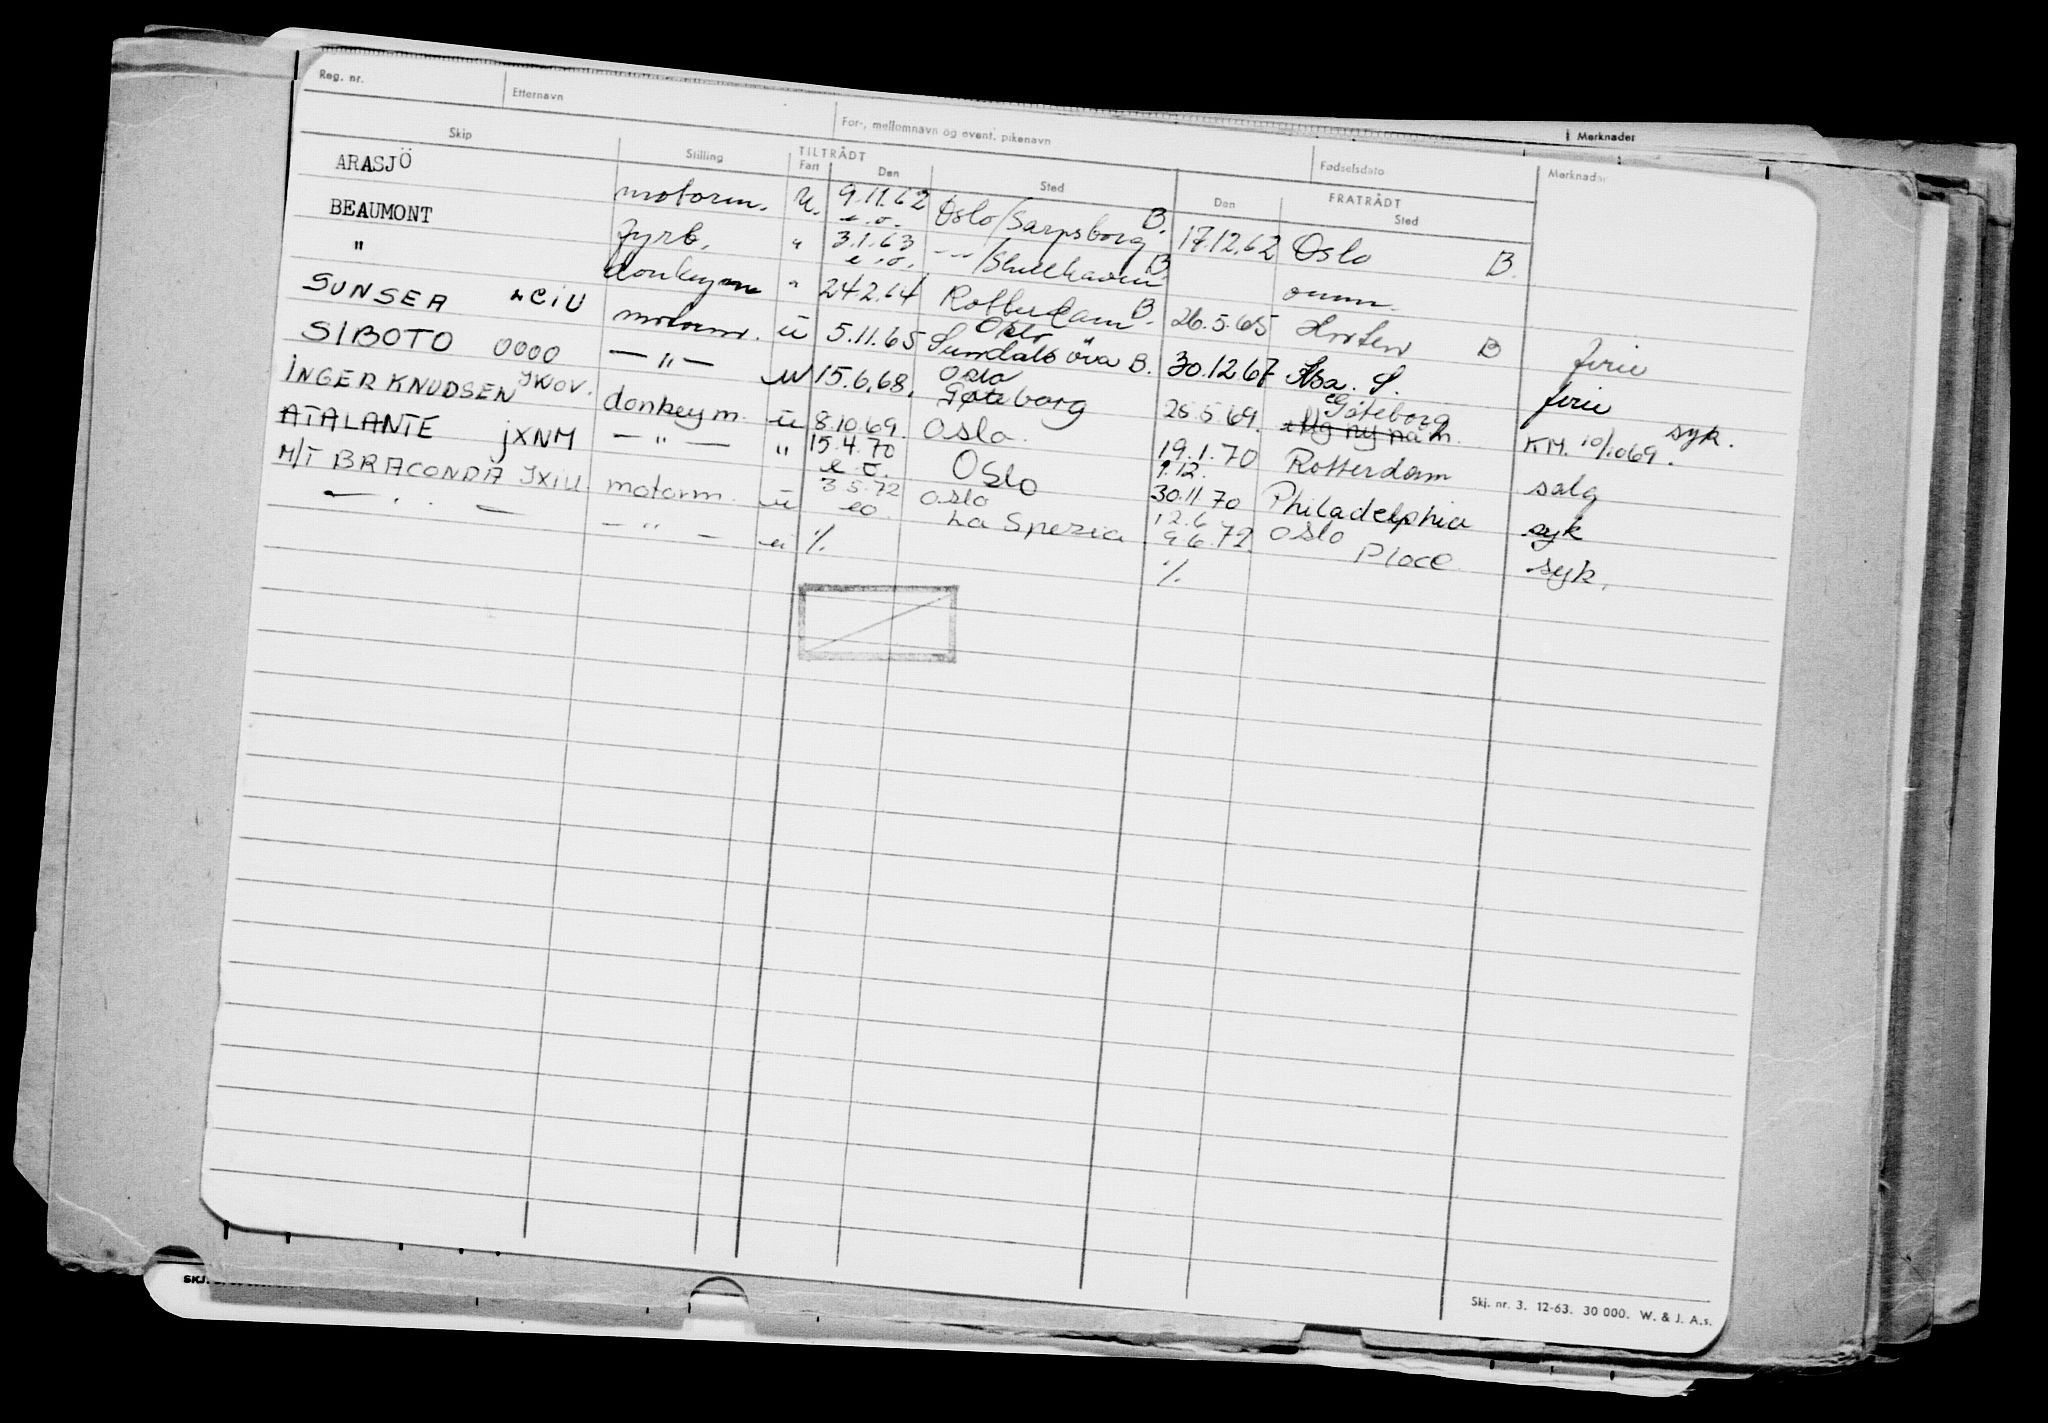 Reg. nr. Etternavn For-, mellomnavn og event. pikenavn Fødselsdato Merknader
Merknader
Skip Stilling TILTRÅDT Fart Den Sted FRATRÅDT Den Sted
ARASJÖ motorm. U. 9.11.62 Oslo/Sarpsborg B. 17.12.62 Oslo B.
e.o.
BEAUMONT fyrb. " 3.1.63 -"-/ B.
e.o.
" donkeym " 24.2.64 Rotterdam B. 26.5.65 Horten B ferie
SUNSEA motorm. u 5.11.65 Oslo Sundalsöra B. 30.12.67 S. ferie
SIBOTO 0000 — " — u 15.6.68. Oslo Gøteborg 25.5.69. Göteborg syk.
INGER KNUDSEN JWOV. donkeym. u 8.10.69. Oslo. 19.1.70 Rotterdam KM. 10/1069.
salg
ATALANTE jXNM — " — " 15.4.70 Oslo 1.12. 30.11.70 Philadelphia syk
e.o.
M/T BRACONDA JXIU. motorm. u 3.5.72 Oslo 12.6 9.6.72. Oslo Place syk.
eo. La Spezia
— " — — " — u % %
Skj. nr. 3. 12-63. 30 000. W. & J. A.s.
SKJ.